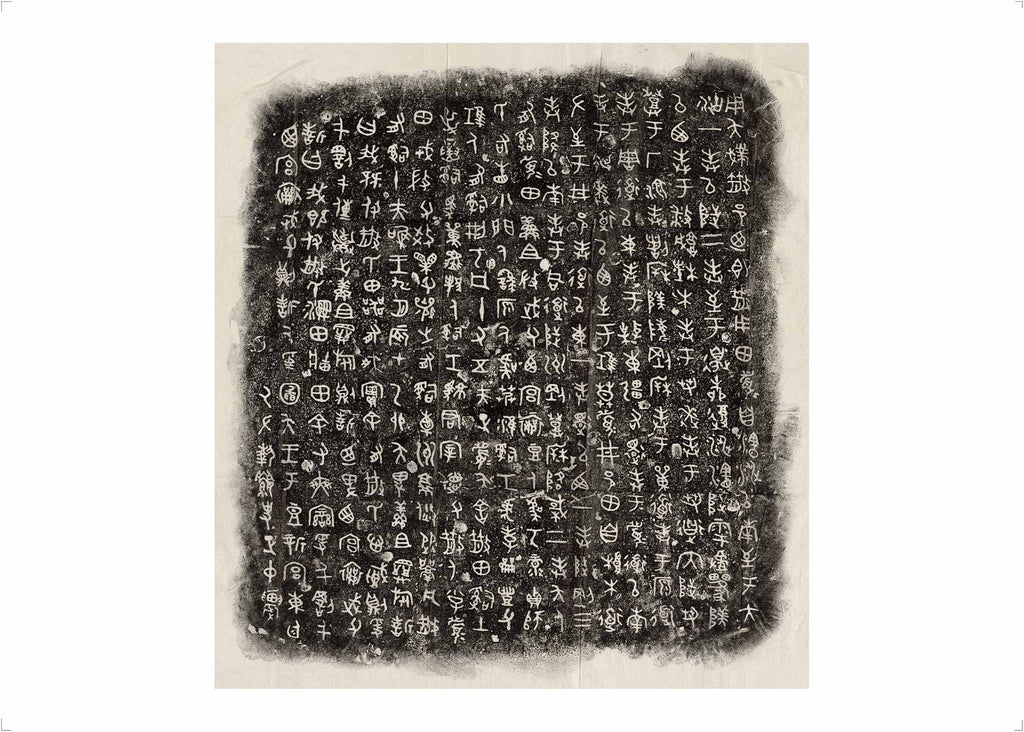 用夨撲散邑迺即散用田履自瀗涉以南至于大
沽一封以陟二封至于邊柳復涉瀗陟雩
以西封于播城楮木封于芻逨封于芻道內陟芻
登于厂湶封剖陵剛封于單道封于原道
封于周道以東封于東疆右還封于履道以南
封于逨道以西至于莫履井邑田自根木道
左至于井邑封道以東一封還以西一封陟剛三
封降以南封于同道陟州剛登降棫二封夨人
有司履田鮮且武父西宮襄豆人虞丂彔貞師
氏右眚小門人繇原人虞艿淮司工虎孝豐父
人有司刑丂凡十又五夫正履夨舍散田司土
屰司馬人司工君宰德父散人小子履
田戎微父效父襄之有司橐州從凡散
有司十夫唯王九月辰才乙卯夨卑鮮且旅誓
曰我既付散氏田器有爽實余有散氏心賊則爰
千罰千傳棄之鮮且旅則誓迺卑西宮襄武父
誓曰我既付散氏濕田牆田余有爽變爰千罰千
西宮襄武父則誓厥受圖夨王于豆新宮東廷
厥左執史正中農